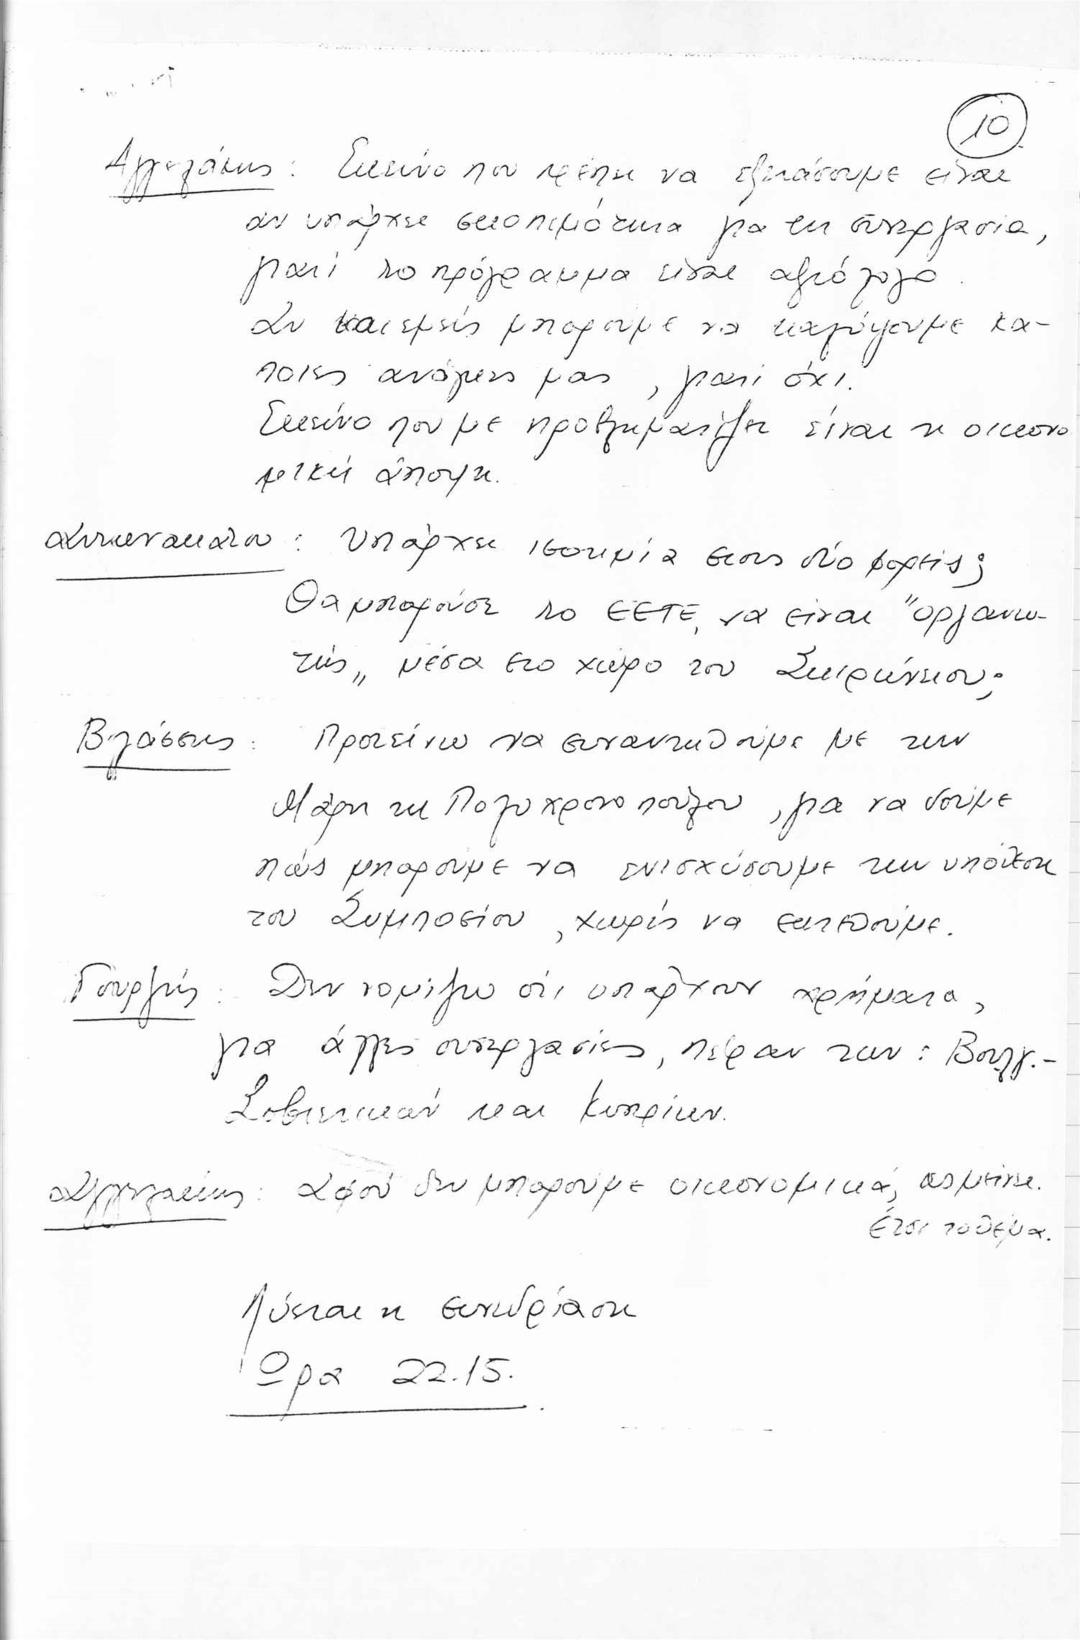 10
Αγγελάκης : Εκείνο που πρέπει να εξετάσουμε είναι
αν υπάρχει σκοπιμότητα για τη συνεργασία,
γιατί το πρόγραμμα είναι αξιόλογο.
Αν και εμείς μπορούμε να καλύψουμε κά-
ποιες ανάγκες μας, γιατί όχι.
Εκείνο που με προβληματίζει είναι η οικονο
μική άποψη.
Αντωνακάτου : Υπάρχει ισοτιμία στους δύο φορείς;
Θα μπορούσε το ΕΕΤΕ, να είναι "οργανω-
τής" μέσα στο χώρο του Σκιρώνειου;
Βλάσσης : Προτείνω να συναντηθούμε με την
Μάρη τη Πολυχρονοπούλου, για να δούμε
πώς μπορούμε να ενισχύσουμε την υπόθεση
του Συμποσίου, χωρίς να εκτεθούμε.
Γουργιής : Δεν νομίζω ότι υπάρχουν χρήματα,
για άλλες συνεργασίες, πέραν των : Βουλγ.-
Σοβιετικών και Κυπρίων.
Αγγελάκης : Αφού δεν μπορούμε οικονομικά, ας μείνει.
έτσι το θέμα.
Λύεται η συνεδρίαση
Ώρα 22.15.